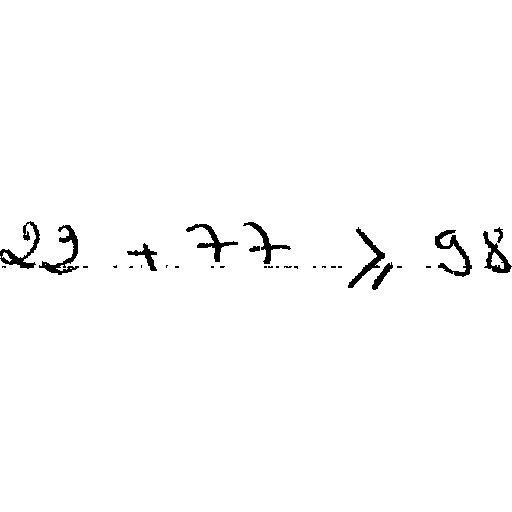 23 + 77 ⩾ 98